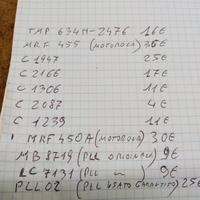 TMP 634H-2476 16€
MRF 455 (MOTOROLA) 30€
C 1947 25€
C 2166 17€
C 1306 11€
C 2087 4€
C 1239 11€
MRF 450A (MOTOROLA) 30€
MB 8719 (PLL ORIGINALE) 9€
LC 7131 (PLL 9€
PLL02 (PLL USATO GARANTITO) 25€